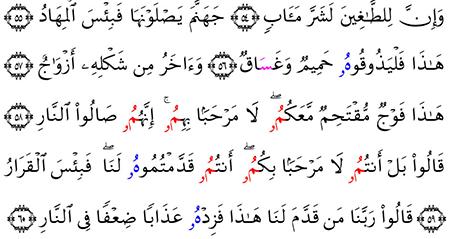 وَإِنَّ لِلطَّٰغِينَ لَشَرَّ مَـَٔابٍ ۝٥٤ جَهَنَّمَ يَصْلَوْنَهَا فَبِئْسَ ٱلْمِهَادُ ۝٥٥
هَٰذَا فَلْيَذُوقُوهُۥ حَمِيمٌ وَغَسَاقٌ ۝٥٦ وَءَاخَرُ مِن شَكْلِهِۦ أَزْوَٰجٌ ۝٥٧
هَٰذَا فَوْجٌ مُّقْتَحِمٌ مَّعَكُمُۥ ۖ لَا مَرْحَبًا بِهِمُۥ ۚ إِنَّهُمُۥ صَالُوا۟ ٱلنَّارِ ۝٥٨
قَالُوا۟ بَلْ أَنتُمُۥ لَا مَرْحَبًا بِكُمُۥ ۖ أَنتُمُۥ قَدَّمْتُمُوهُۥ لَنَا ۖ فَبِئْسَ ٱلْقَرَارُ
۝٥٩ قَالُوا۟ رَبَّنَا مَن قَدَّمَ لَنَا هَٰذَا فَزِدْهُۥ عَذَابًا ضِعْفًا فِى ٱلنَّارِ ۝٦٠